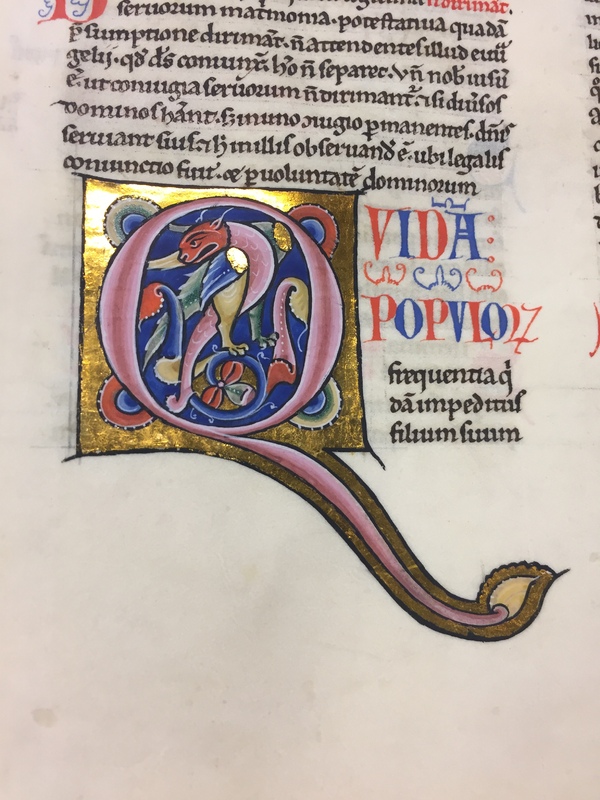 seruorum matrimonia. potestatiua quadā
p̄sumptione dirimāt. n̄ attendentes illud euā
gelij. qđ d̄s coniunx̄. hō n̄ separet. vn̄ nob̄ uisū
ē. ut coniugia seruorum n̄ dirimant̄.
dominos hāt. ɔiugio ꝑmanentes. dn̄is
seruiant suis. ⁊ h̄ in illis obseruand̄ ē. ubi legalis
coniunctio fuit. ⁊ ꝑ uoluntatē dominorum
QVIDĀ:
POPVLOꝜ
frequentia q̄
dā impeditus
filium suum